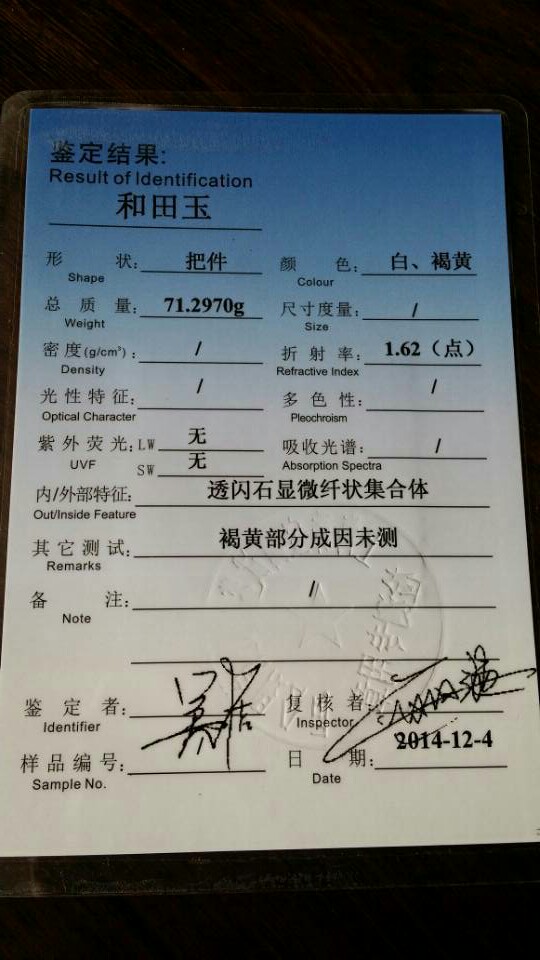 鉴定结果:
Result of Identification
和田玉
形 状: 把件 颜 色: 白、褐黄
Shape Colour
总 质 量: 71.2970g 尺寸度量: /
Weight Size
密 度(g/cm³): / 折 射 率: 1.62（点）
Density Refractive Index
光性特征: / 多 色 性: /
Optical Character Pleochroism
紫外荧光: LW 无 吸收光谱: /
UVF SW 无 Absorption Spectra
内/外部特征: 透闪石显微纤状集合体
Out/Inside Feature
其它测试: 褐黄部分成因未测
Remarks
备 注: /
Note
鉴 定 者: 复 核 者:
Identifier Inspector
样品编号: 日 期: 2014-12-4
Sample No. Date